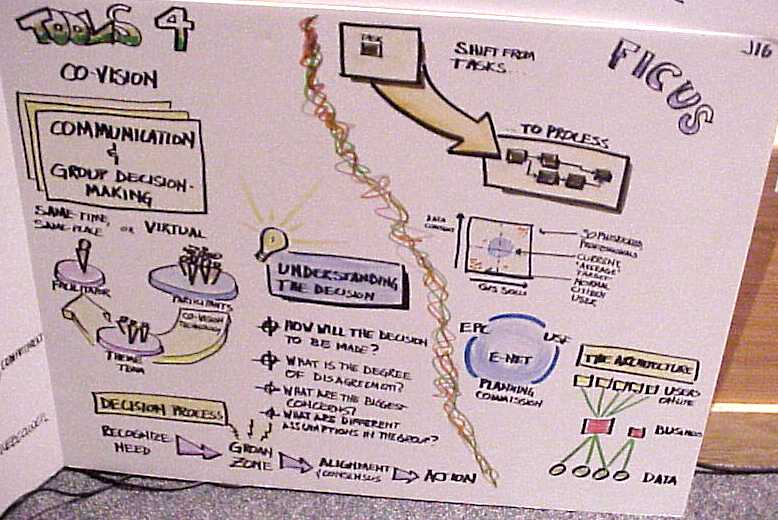 TOOLS 4
CO-VISION
COMMUNICATION
&
GROUP DECISION-
MAKING
SAME-TIME,
SAME-PLACE
OR VIRTUAL
FACILITATOR
PARTICIPANTS
CO-VISION
TECHNOLOGY
THEME
TEAM
UNDERSTANDING
THE DECISION
HOW WILL THE DECISION
TO BE MADE?
WHAT IS THE DEGREE
OF DISAGREEMENT?
WHAT ARE THE BIGGEST
CONCERNS?
WHAT ARE DIFFERENT
ASSUMPTIONS IN THE GROUP?
DECISION PROCESS
RECOGNIZE
NEED
GROAN
ZONE
ALIGNMENT
/CONSENSUS
ACTION
FICUS
J16
TASK
SHIFT FROM
TASKS...
...TO PROCESS
DATA
CONTENT
GIS SKILLS
SOPHISTICATED
PROFESSIONALS
CURRENT
"AVERAGE"
TARGET
NORMAL
CITIZEN
USER
EPC
USF
E-NET
PLANNING
COMMISSION
THE ARCHITECTURE
USERS
ON-LINE
BUSINESS
DATA